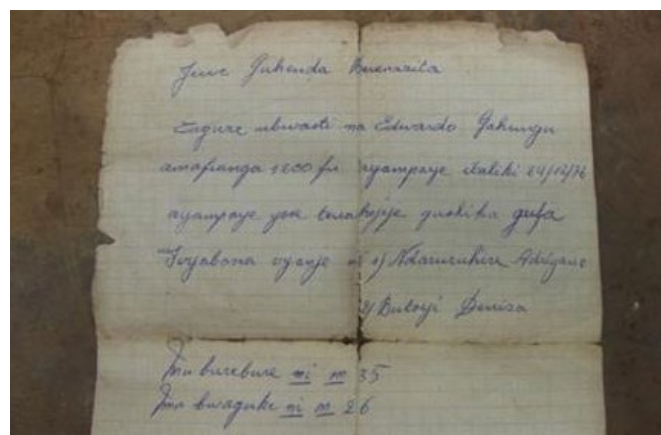 Juwe Gahenda Buenasita
Zagure ubwasti na Edwardo Gahungu
amafranga 1200 fr ayampaye italiki 24/12/76
ayampaye yose gushika gufa
Ivyabona vyanje ni 1) Ndaruzuhire
2) Butoyi Deniza
Mu burebure ni m 35
Mu bwaguke ni m 26